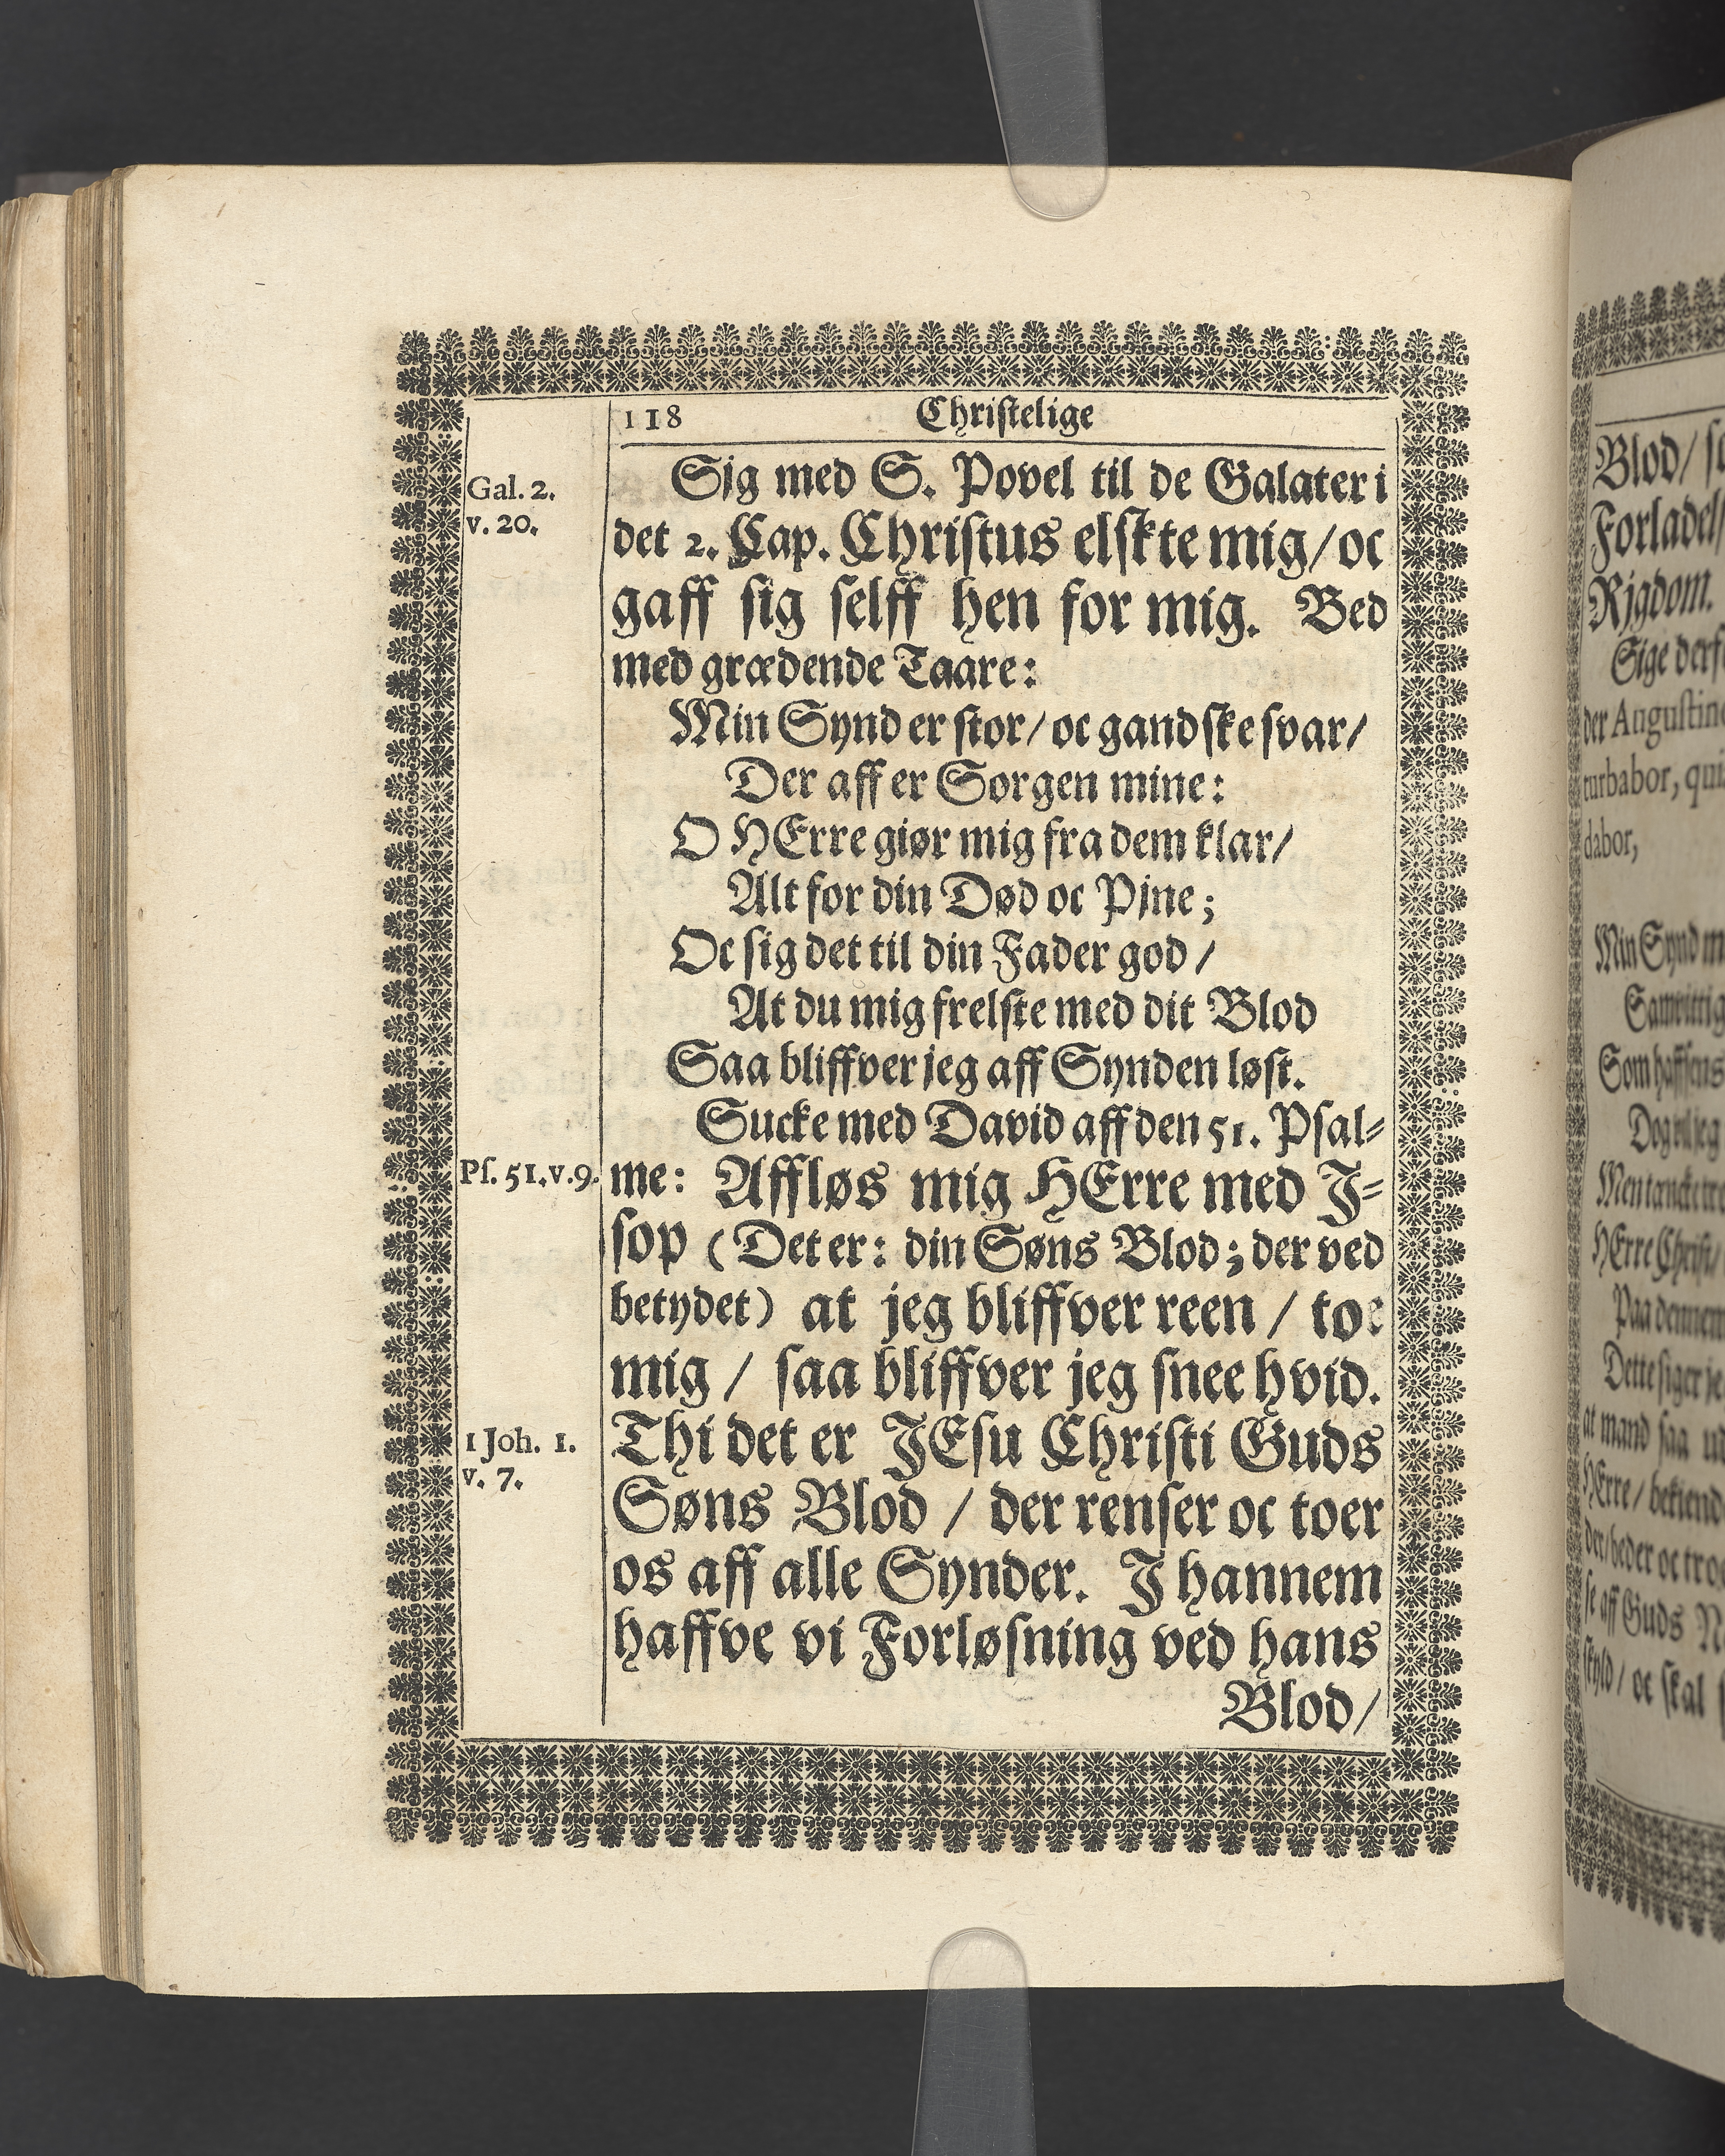 118 Christelige
Gal. 2.
v. 20.
Sig med S. Povel til de Galater i
det 2. Cap. Christus elskte mig/ oc
gaff sig selff hen for mig. Bed
med grædende Taare:
Min Synd er stor/ oc gandske svar/
Der aff er Sorgen mine:
O HErre giør mig fra dem klar/
Alt for din Død oc Pjne;
Oc sig det til din Fader god/
At du mig frelste med dit Blod
Saa bliffver jeg aff Synden løst.
Sucke med David aff den 51. Psal-
Ps. 51. v. 9.
me: Affløs mig HErre med J-
sop (Det er: din Søns Blod; der ved
betydet) at jeg bliffver reen / toe
mig / saa bliffver jeg snee hvid.
1 Joh. 1.
v. 7.
Thi det er JEsu Christi Guds
Søns Blod / der renser oc toer
os aff alle Synder. J hannem
haffve vi Forløsning ved hans
Blod/
Blod/
Rjgdom.
der Augustin
turbabor, qui
dabor,
Min Synd
Dog vil jeg
HErre Christ/
Dette siger je
at mand saa
HErre/ bekiend
se aff Guds
skyld/ oc skal